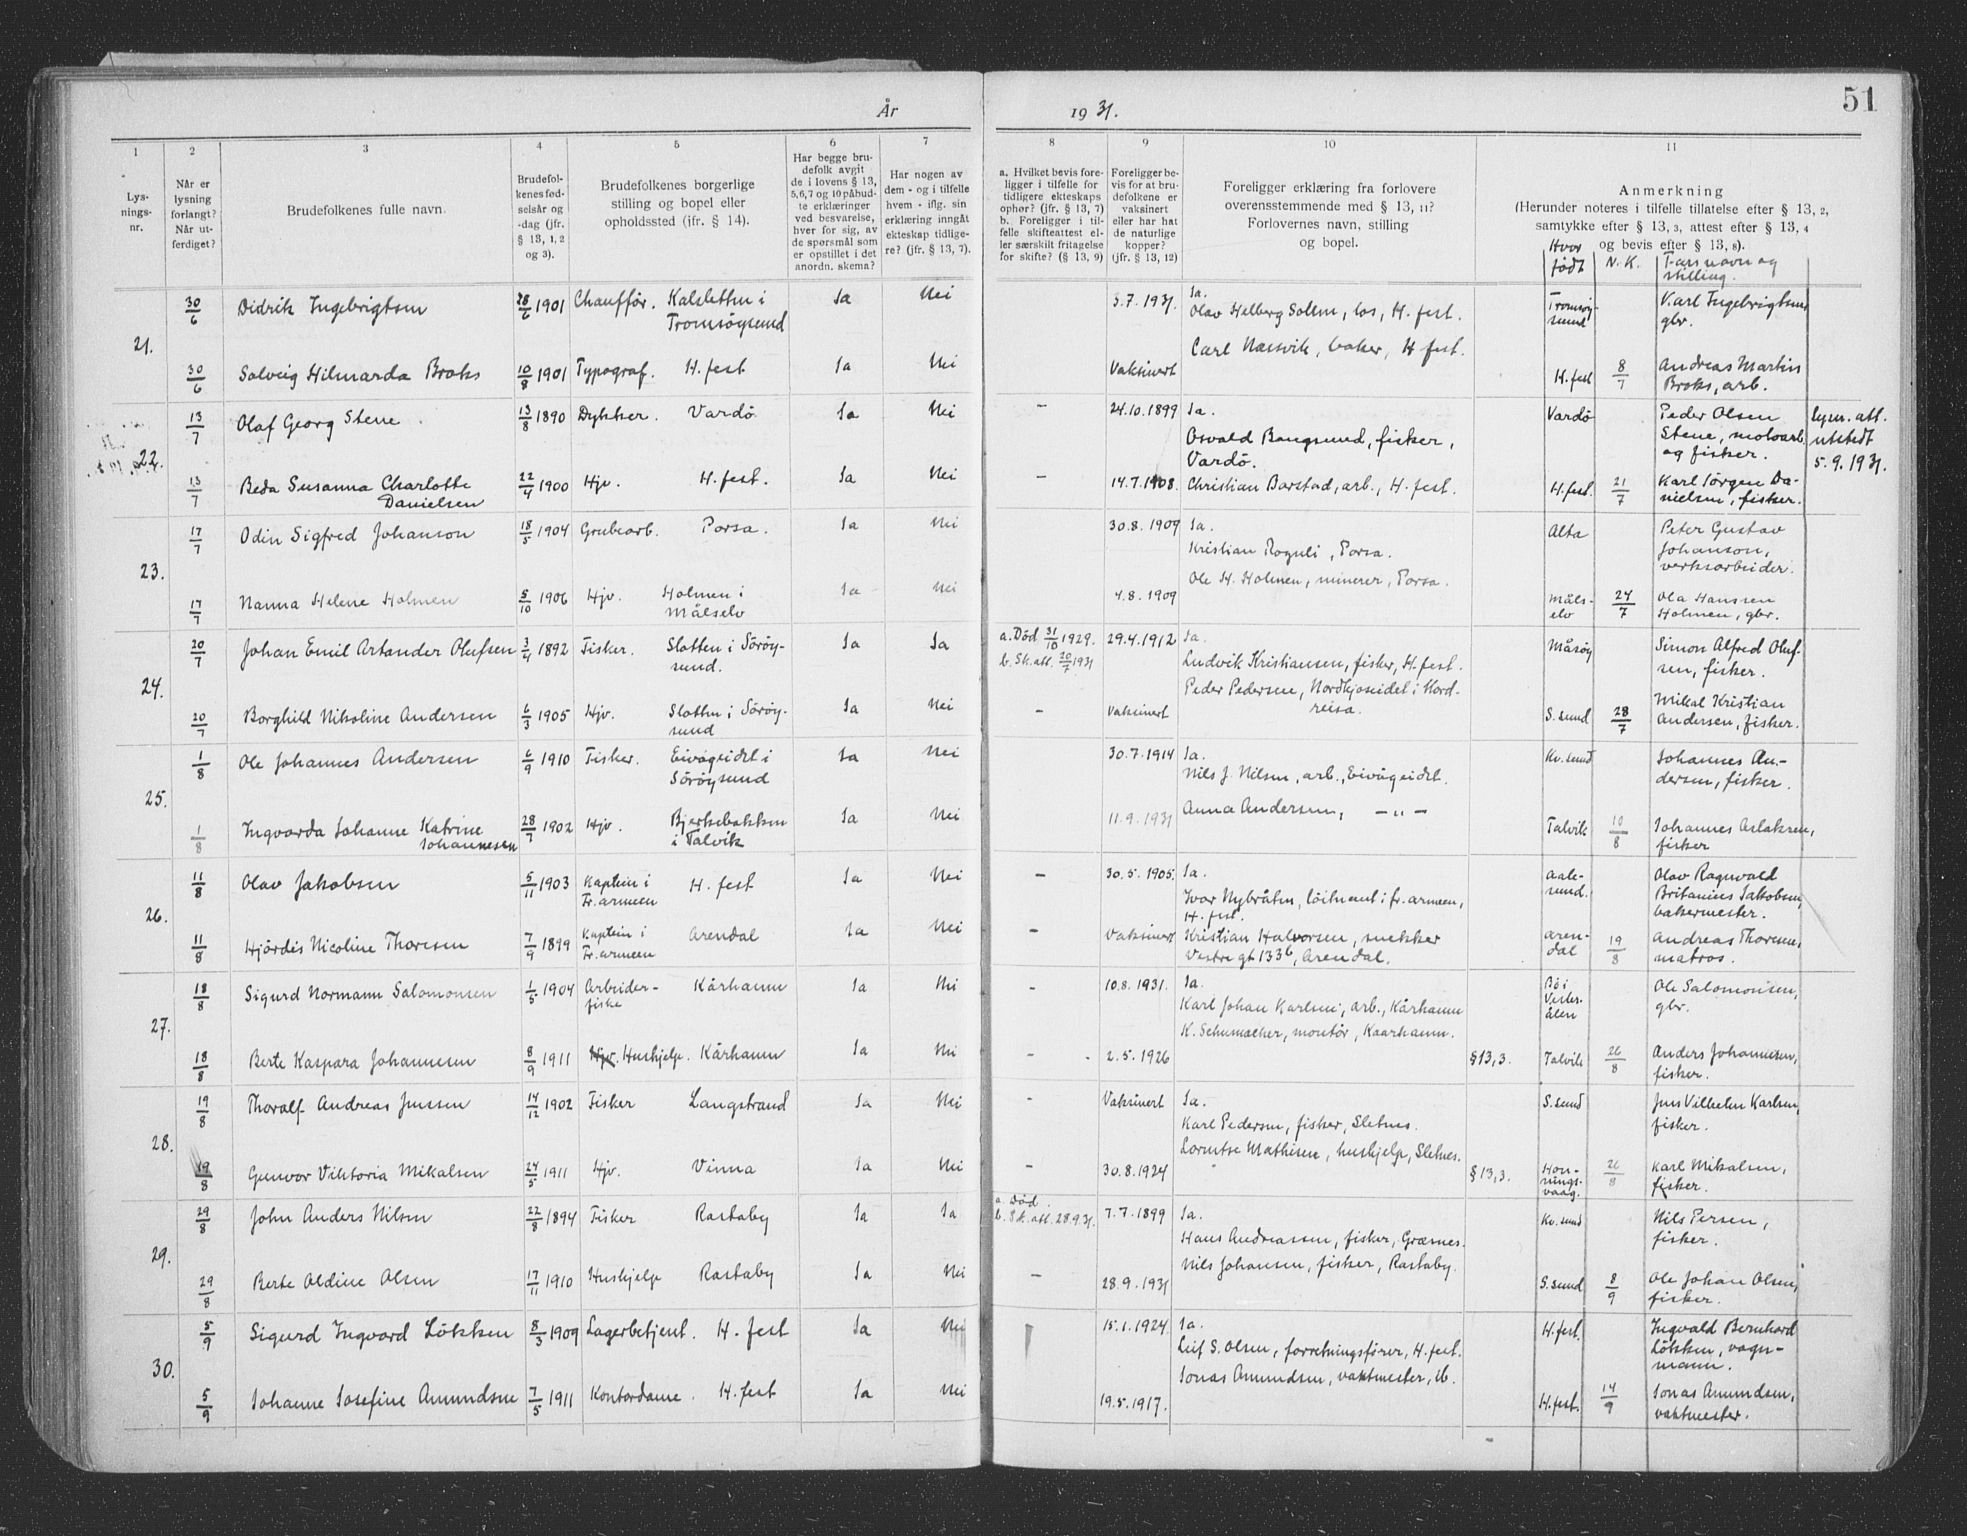 År 1931.
51
1
2
3
4
5
6
7
8
9
10
11
Lys-
nings-
nr.
Når er
lysning
forlangt?
Når ut-
ferdiget?
Brudefolkenes fulle navn.
Brudefol-
kenes fød-
selsår og
-dag (jfr.
§ 13, 1, 2
og 3).
Brudefolkenes borgerlige
stilling og bopel eller
opholdssted (jfr. § 14).
Har begge bru-
defolk avgit
de i lovens § 13,
5,6,7 og 10 påbud-
te erklæringer
ved besvarelse,
hver for sig, av
de spørsmål som
er opstillet i det
anordn. skema?
Har nogen av
dem - og i tilfelle
hvem - iflg. sin
erklæring inngått
ekteskap tidlige-
re? (jfr. § 13, 7).
a. Hvilket bevis fore-
ligger i tilfelle for
tidligere ekteskaps
ophør? (jfr. § 13, 7)
b. Foreligger i til-
felle skifteattest el-
ler særskilt fritagelse
for skifte? (§ 13, 9)
Foreligger be-
vis for at bru-
defolkene er
vaksinert
eller har hat
de naturlige
kopper?
(jfr. § 13, 12)
Foreligger erklæring fra forlovere
overensstemmende med § 13, 11?
Forlovernes navn, stilling
og bopel.
Anmerkning
(Herunder noteres i tilfelle tillatelse efter § 13, 2,
samtykke efter § 13, 3, attest efter § 13, 4
og bevis efter § 13, 8).
Hvor
født
N. K.
Fars navn og
stilling.
21.
30/6 Didrik Ingebrigtsen 28/6 1901 Chauffør. Kalsletten i Ja Nei 3.7.1931. Ja. Tromsøy- Karl Ingebrigtsen
Tromsøysund Olav Helberg Solem, los, H.fest. sund gbr.
Carl Næsvik, baker, H.fest.
30/6 Solveig Hilmarda Broks 10/8 1901 Typograf. H.fest Ja Nei Vaksinert H.fest 8/7 Andreas Martin
Broks, arb.
22.
13/7 Olaf Georg Stene 13/8 1890 Dykker. Vardø Ja Nei — 24.10.1899 Ja. Vardø Peder Olsen lysn. att.
Osvald Bangsund, fisker, Stene, motoarb. utstedt
Vardø. og fisker. 5.9.1931.
13/7 Beda Susanna Charlotte 22/4 1900 Hjv. H.fest. Ja Nei — 14.7.1908. Christian Barstad, arb., H.fest. H.fest. 21/7 Karl Jørgen Da-
Danielsen nielsen, fisker.
23.
17/7 Odin Sigfred Johanson 18/5 1904 Grubearb. Porsa. Ja Nei 30.8.1909 Ja. Alta Peter Gustav
Kristian Roguli, Porsa. Johanson,
Ole H. Holmen, minerer, Porsa. verksarbeider.
17/7 Nanna Helene Holmen 5/10 1906 Hjv. Holmen i Ja Nei 4.8.1909 Måls- 24/7 Ola Hanssen
Målselv elv Holmen, gbr.
24.
20/7 Johan Emil Artander Olufsen 3/4 1892 Fisker. Slotten i Sørøy- Ja Ja a. Død 31/10 1929. 29.4.1912 Ja. Måsøy Simon Alfred Oluf-
sund. b. Sk.att. 20/7 1931 Ludvik Kristiansen, fisker, H.fest. sen, fisker.
Peder Pedersen, Nordkjoseidet i Nord-
reisa.
20/7 Borghild Nikoline Andersen 6/3 1905 Hjv. Slotten i Sørøy- Ja Nei — Vaksinert S.sund 28/7 Mikal Kristian
sund Andersen, fisker.
25.
1/8 Ole Johannes Andersen 6/9 1910 Fisker. Eivågeidet i Ja Nei 30.7.1914 Ja. Kv.sund Johannes An-
Sørøysund Nils J. Nilsen, arb., Eivågeidet. dersen, fisker.
Anna Andersen, — „ —
1/8 Ingvarda Johanne Katrine 28/7 1902 Hjv. Bjerkebakken Ja Nei 11.9.1931 Talvik 10/8 Johannes Aslaksen,
Johannesen i Talvik fisker
26.
11/8 Olav Jakobsen 5/11 1903 Kaptein i H.fest Ja Nei — 30.5.1905. Ja. Aale- Olav Ragnvald
Fr.armeen Ivar Nybråten, løitnant i fr.armeen, sund. Britanius Jakobsen,
H.fest. bakermester.
11/8 Hjørdis Nicoline Thoresen 7/9 1899 Kaptein i Arendal Ja Nei — Vaksinert Kristian Halvorsen, snekker Aren- 19/8 Andreas Thoresen,
Fr.armeen Vestre gt 133b, Arendal. dal matros.
27.
18/8 Sigurd Normann Salomonsen 1/5 1904 Arbeider- Kårhamn Ja Nei — 10.8.1931. Ja. Bø i Ole Salomonsen,
fiske Karl Johan Karlsen, arb., Kårhamn Vester- gbr.
K. Schumacher, montør, Kaarhamn. ålen
18/8 Berte Kaspara Johannesen 8/9 1911 Hjv. Hushjelp. Kårhamn Ja Nei — 2.5.1926 §13,3. Talvik 26/8 Anders Johannesen,
fisker.
28.
19/8 Thoralf Andreas Jenssen 14/12 1902 Fisker Langstrand Ja Nei - Vaksinert Ja. S.sund Jens Vilhelm Karlsen,
Karl Pedersen, fisker, Sletnes. fisker.
Lorentse Mathisen, hushjelp, Sletnes.
19/8 Gunvor Viktoria Mikalsen 24/5 1911 Hjv. Vinna Ja Nei — 30.8.1924 §13,3. Hon- 26/8 Karl Mikalsen,
nings- fisker.
vaag.
29.
29/8 John Anders Nilsen 22/8 1894 Fisker Rastaby Ja Ja a. Død 7.7.1899 Ja. Kv.sund Nils Persen,
b. Sk.att. 28.9.31. Hans Andreassen, fisker, Grøsnes. fisker.
Nils Johansen, fisker, Rastaby.
29/8 Berte Aldine Olsen 17/11 1910 Hushjelp Rastaby Ja Nei — 28.9.1931 S.sund 8/9 Ole Johan Olsen,
fisker.
30.
5/9 Sigurd Ingvard Løkken 8/3 1909 Lagerbetjent. H.fest Ja Nei 15.1.1924. Ja. H.fest. Ingvald Bernhard
Leif S. Olsen, forretningsfører, H.fest. Løkken, vogn-
Jonas Amundsen, vaktmester, ib. mann.
5/9 Johanne Josefine Amundsen 7/5 1911 Kontordame. H.fest Ja Nei 19.5.1917. H.fest. 14/9 Jonas Amundsen,
vaktmester.